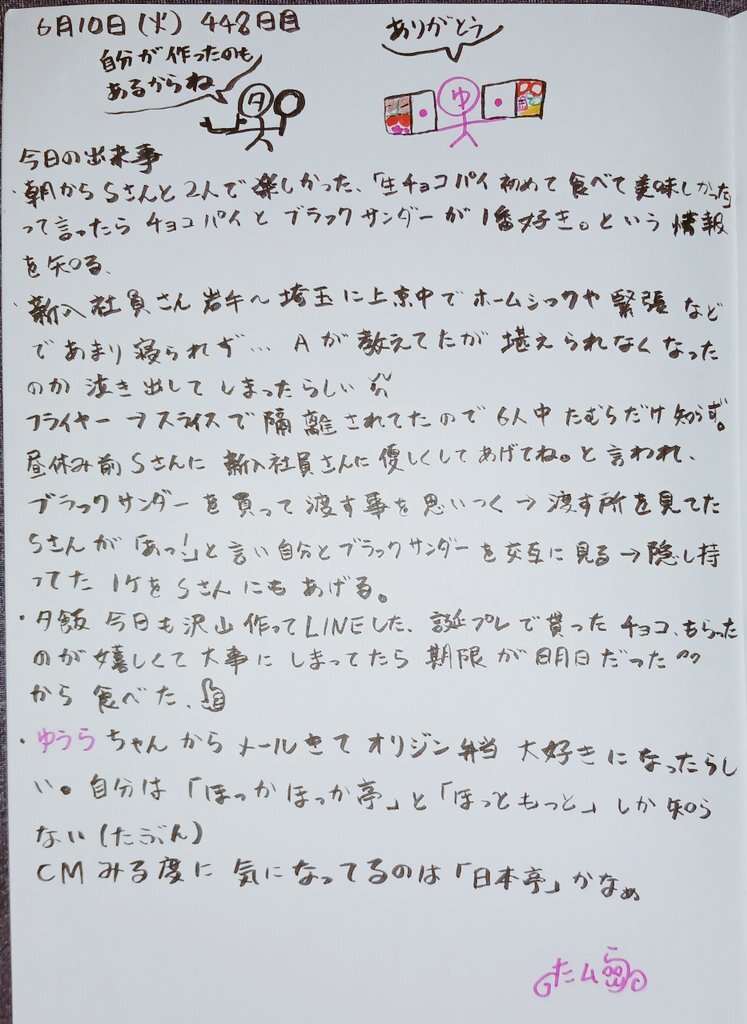 6月10日(火) 448日目
ありがとう
自分が作ったのも
あるからね
タ
ゆ
今日の出来事
・朝からSさんと2人で楽しかった、「生チョコパイ初めて食べて美味しかった
って言ったらチョコパイとブラックサンダーが1番好き。という情報
を知る、
・新入社員さん岩手〜埼玉に上京中でホームシックや緊張など
であまり寝られず… Aが教えてたが堪えられなくなった
のか泣き出してしまったらしい
フライヤー→スライスで隔離されてたので6人中たむらだけ知らず。
昼休み前Sさんに新入社員さんに優しくしてあげてね。と言われ、
ブラックサンダーを買って渡す事を思いつく→渡す所を見てた
Sさんが「あっ!」と言い自分とブラックサンダーを交互に見る→隠し持
ってた1ケをSさんにもあげる。
・夕飯 今日も沢山作ってLINEした、誕プレで貰ったチョコ、もらった
のが嬉しくて大事にしまってたら期限が明日だった
から食べた、
・ゆうらちゃんからメールきてオリジン弁当大好きになったらし
い。自分は「ほっかほっか亭」と「ほっともっと」しか知ら
ない(たぶん)
CMみる度に気になってるのは「日本亭」かなぁ
たム